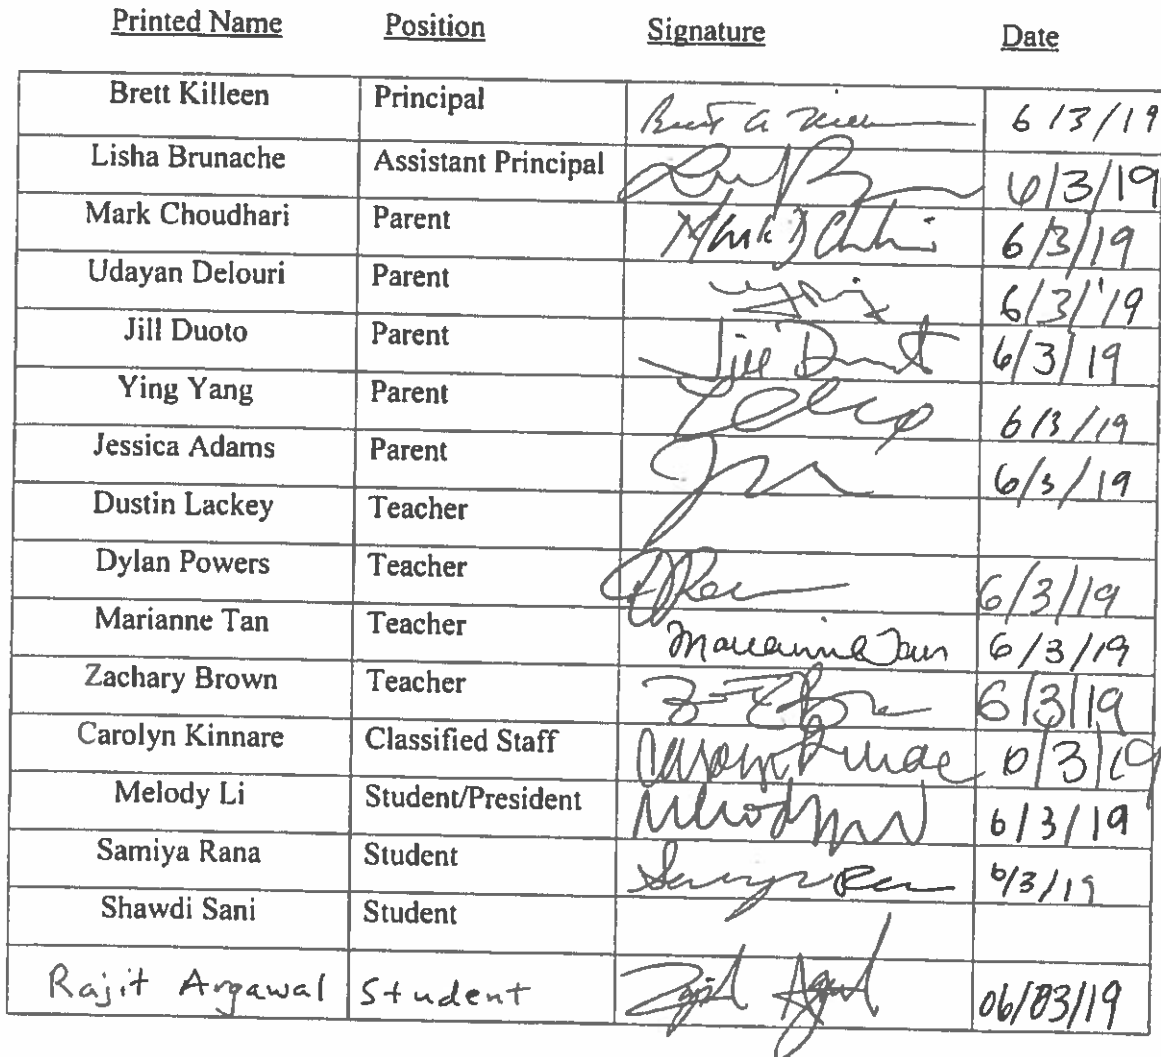 Printed Name Position Signature Date
Brett Killeen Principal Brett A Killeen 6/3/19
Lisha Brunache Assistant Principal 6/3/19
Mark Choudhari Parent 6/3/19
Udayan Delouri Parent 6/3/19
Jill Duoto Parent Jill Duoto 6/3/19
Ying Yang Parent 6/3/19
Jessica Adams Parent 6/3/19
Dustin Lackey Teacher
Dylan Powers Teacher 6/3/19
Marianne Tan Teacher Marianne Tan 6/3/19
Zachary Brown Teacher 6/3/19
Carolyn Kinnare Classified Staff Carolyn Kinnare 6/3/19
Melody Li Student/President 6/3/19
Samiya Rana Student 6/3/19
Shawdi Sani Student
Rajit Argawal Student 06/03/19